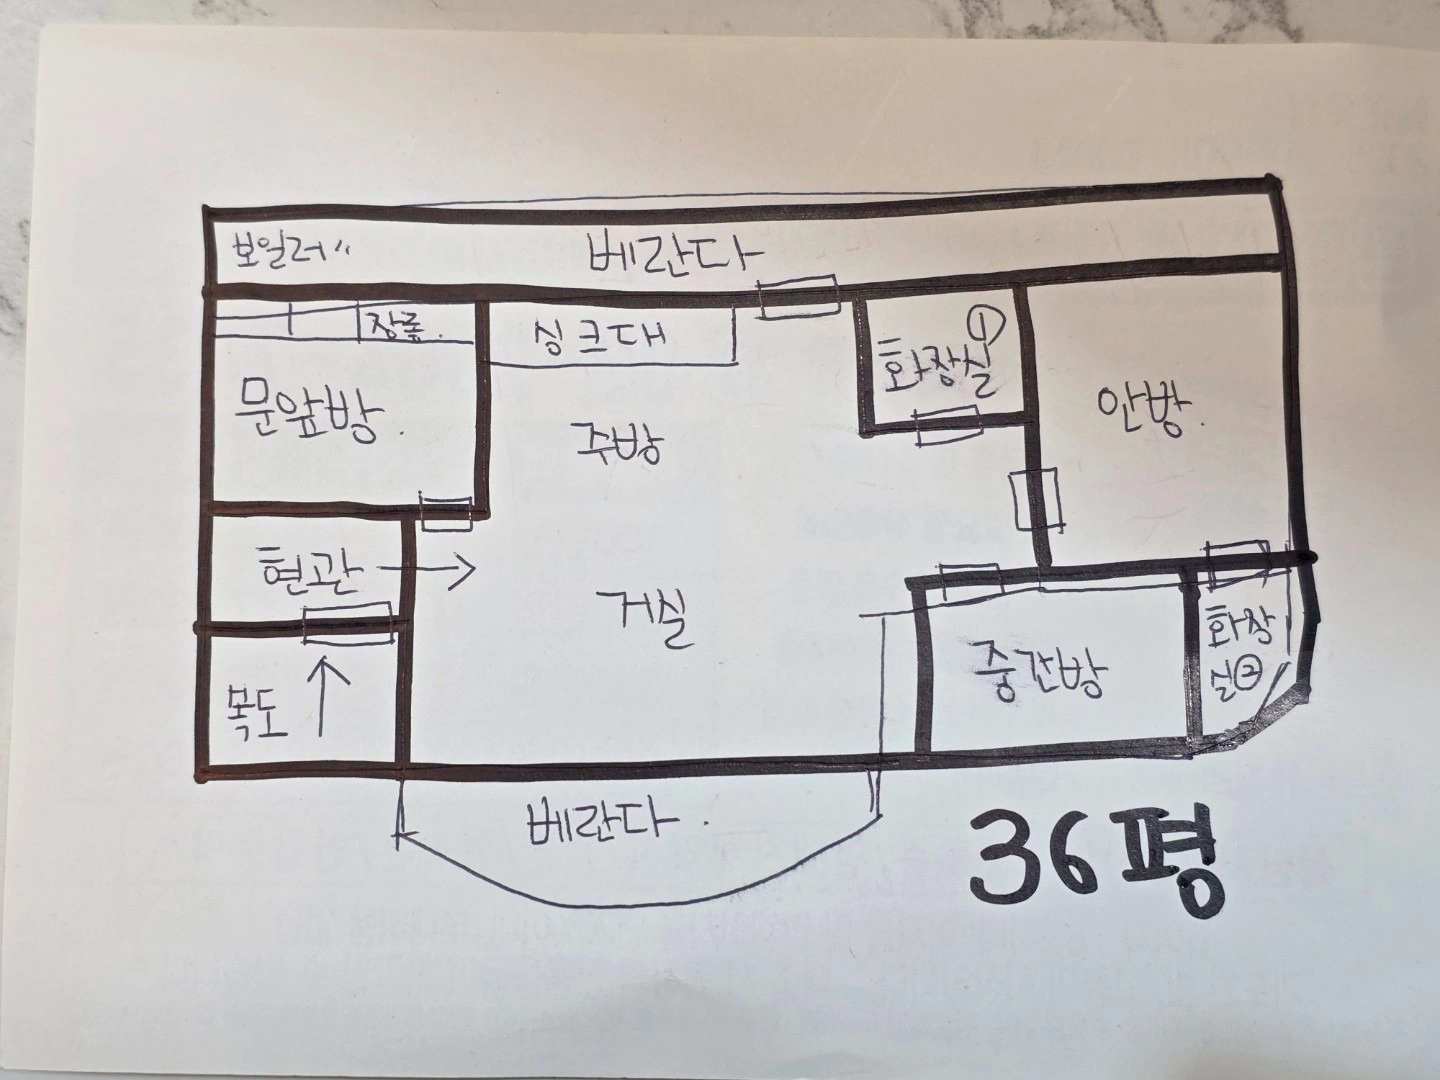 보일러"
베란다
장롱.
싱크대
①
화장실
문앞방.
안방.
주방
현관
거실
화장
실②
중간방
복도
베란다.
36평